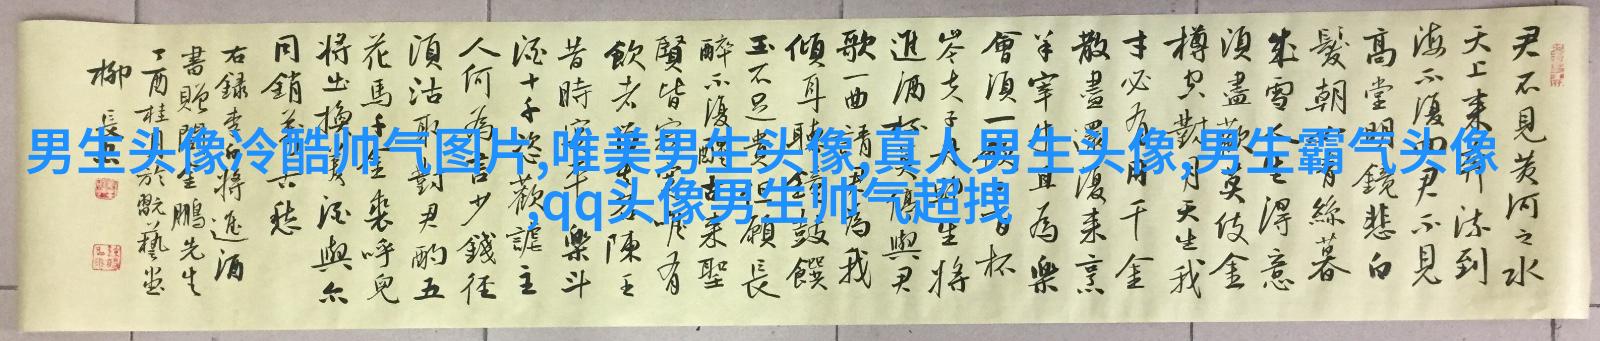 君不見黃河之水
天上來奔流到
海不復回君不見
高堂明鏡悲白
髮朝如青絲暮
成雪人生得意
須盡歡莫使金
樽空對月天生我
才必有用千金
散盡還復來烹
羊宰牛且為樂
會須一飲三百杯
岑夫子丹丘生將
進酒杯莫停與君
歌一曲請君為我
傾耳聽鐘鼓饌
玉不足貴但願長
醉不復醒古來聖
賢皆寂寞唯有
飲者留其名陳王
昔時宴平樂斗
酒十千恣歡謔主
人何為言少錢徑
須沽取對君酌五
花馬千金裘呼兒
將出換美酒與尔
同銷萬古愁
右錄李白將進酒
書贈金鵬先生
丁酉桂月於翫藝堂
柳長
男生头像冷酷帅气图片,唯美男生头像,真人男生头像,男生霸气头像
,qq头像男生帅气超拽